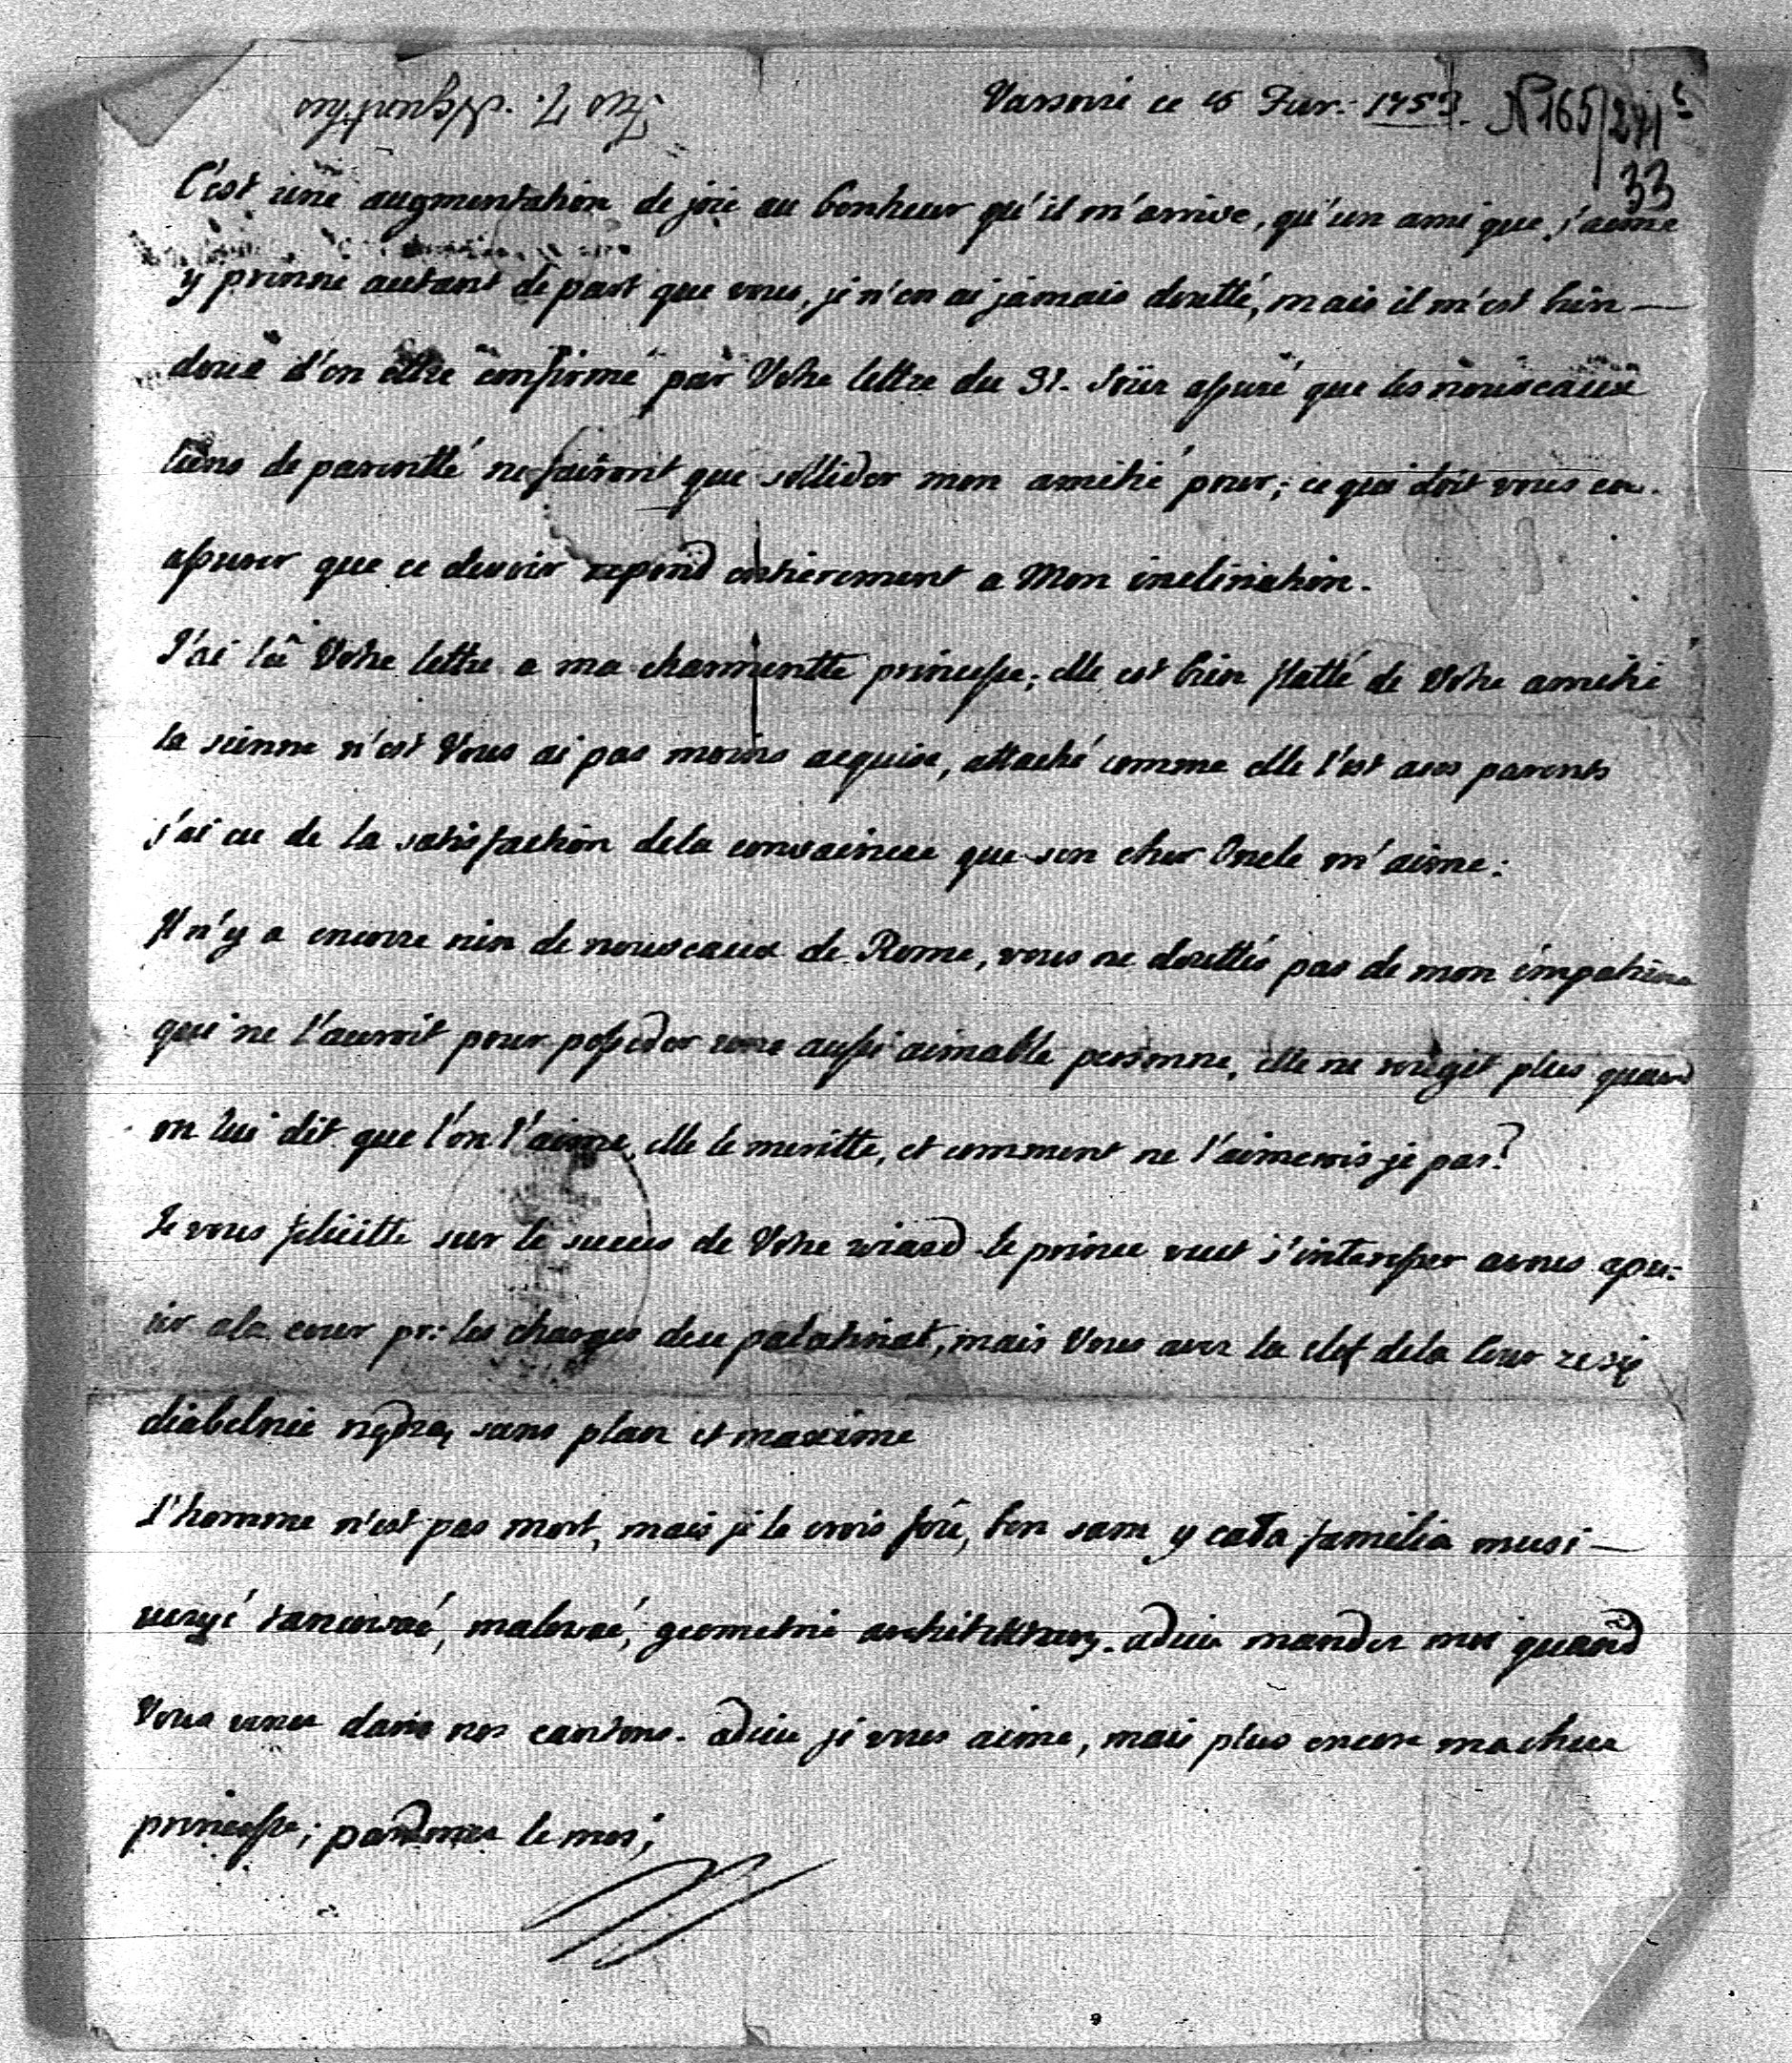 Varsovie ce 6 Fevr: 1753. N165/271
33
C'est une augmentation de joie au bonheur qu'il m'arrive, qu'un ami que j'aime
y prenne autant de part que vous, je n'en ai jamais doutté, mais il m'est bien —
doux d'en être confirmé par Votre lettre du 31. soüez assuré que les nouveaux
liens de parenttée ne fairont que sollider mon amitié pour; ce qui doit vous en
assurer que ce devoir repond entierement a Mon inclination.
J'ai lû Votre lettre a ma charmentte princesse; elle est bien flatté de Votre amitié
la sienne n'est Vous ai pas moins acquise, attaché comme elle l'est a ses parents
j'ai eu de la satisfaction dela convaincre que son cher Oncle m'aime:
Il n'y a encorre rien de nouveaux de Rome, vous ne douttés pas de mon impatience
qui ne l'auroit pour posseder une aussi aimable personne, elle ne rougit plus quand
on lui dit que l'on l'aime, elle le meritte, et comment ne l'aimerois-je pas?
Je vous felicitte sur le succes de Votre ziazd le prince veut s'interesser avous
ala cour pr: les charges du palatinat, mais Vous avez la clef dela Cour
diabelnie nędzą, sans plan et maxime
l'homme n'est pas mort, mais je le crois foû, bon sam y cała familia musi —
tancować, malować, geometrie architekturę. adieu mandez moi quand
Vous venez dans nos cantons. adieu je vous aime, mais plus encore ma chere
princesse; pardonnez le moi;